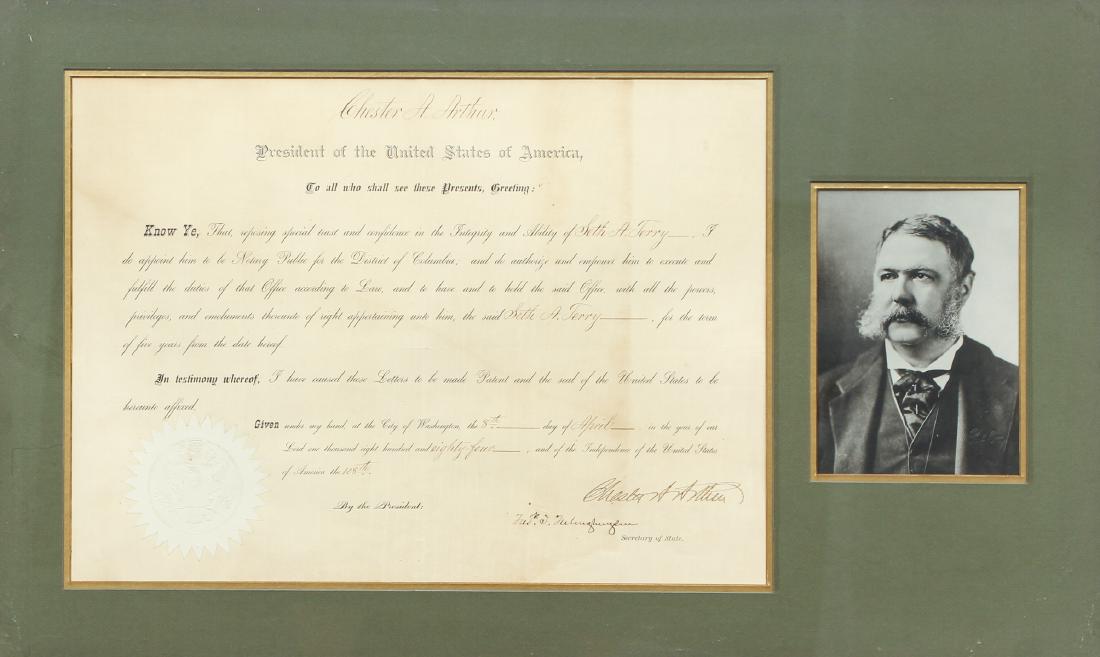 Chester A Arthur.
President of the United States of America,
To all who shall see these Presents, Greeting:
Know Ye, That, reposing special trust and confidence in the Integrity and Ability of Seth A. Terry, I
do appoint him to be Notary Public for the District of Columbia; and do authorize and empower him to execute and
fulfill the duties of that Office according to Law, and to have and to hold the said Office, with all the powers,
privileges, and emoluments thereunto of right appertaining unto him, the said Seth A. Terry, for the term
of five years from the date hereof.
In testimony whereof, I have caused these Letters to be made Patent and the seal of the United States to be
hereunto affixed.
Given under my hand, at the City of Washington, the 8th day of April, in the year of our
Lord one thousand eight hundred and eighty-four, and of the Independence of the United States
of America the 108th.
Chester A Arthur
By the President:
Fred'k. T. Frelinghuysen
Secretary of State.